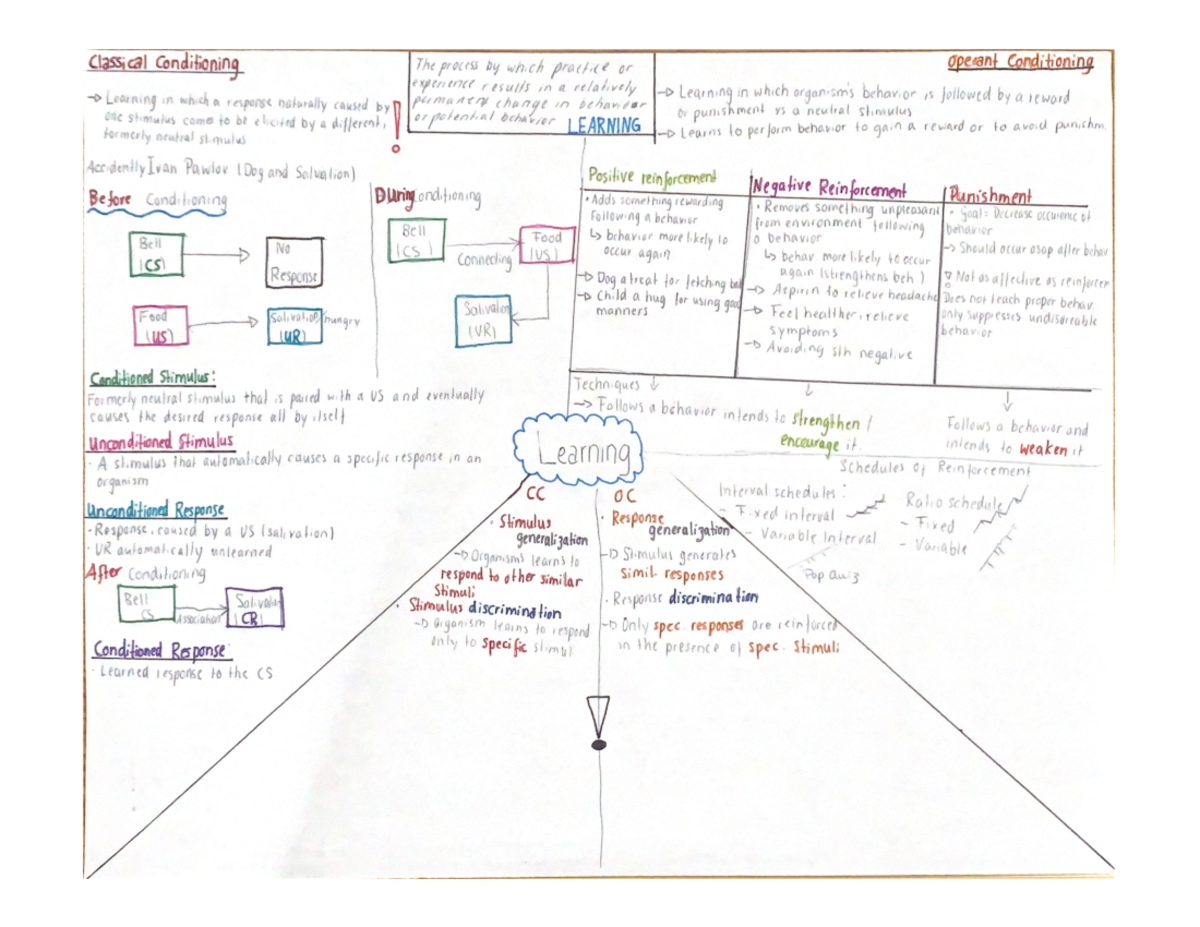 Classical Conditioning
→ Learning in which a response naturally caused by
one stimulus comes to be elicited by a different,
formerly neutral stimulus
Accidently Ivan Pavlov (Dog and Salvation)
The process by which practice or
experience results in a relatively
permanent change in behaviour
or potential behavior LEARNING
Operant Conditioning
→ Learning in which organism's behavior is followed by a reward
or punishment vs a neutral stimulus
→ Learns to perform behavior to gain a reward or to avoid punishm
Before Conditioning
Bell
(CS)
No
Response
Food
(US)
Salivation/hungry
(UR)
During conditioning
Bell
(CS)
Connecting
Food
(US)
Salivation
(UR)
Positive reinforcement
• Adds something rewarding
following a behavior
↳ behavior more likely to
occur again
→ Dog a treat for fetching bal
→ Child a hug for using good
manners
Negative Reinforcement
• Removes something unpleasant
from environment following
a behavior
↳ behav more likely to occur
again (strengthens beh)
→ Aspirin to relieve headache
→ Feel healthier, relieve
symptoms
→ Avoiding sth negative
Punishment
• Goal = Decrease occurence of
behavior
→ Should occur asap after behav
! Not as affective as reinforcer
Does not teach proper behav.
only suppresses undisareable
behavior
Techniques ↓
→ Follows a behavior intends to strengthen /
encourage it.
Follows a behavior and
intends to weaken it
Conditioned Stimulus:
Formerly neutral stimulus that is paired with a US and eventually
causes the desired response all by itself
Unconditioned Stimulus
· A stimulus that automatically causes a specific response in an
organism
Unconditioned Response
· Response caused by a US (salivation)
· UR automatically unlearned
After Conditioning
Bell
CS
Association
Salivation
(CR)
Conditioned Response:
· Learned response to the CS
Learning
CC
• Stimulus
generalization
→ Organisms learns to
respond to other similar
Stimuli
• Stimulus discrimination
→ Organism learns to respond
only to specific stimuli
OC
• Response
generalization
→ Stimulus generates
simil. responses
• Response discrimination
→ Only spec. responses are reinforced
in the presence of spec. Stimuli
Schedules of Reinforcement
Interval schedules:
- Fixed interval
- Variable Interval
Pop quiz
Ratio schedule
- Fixed
- Variable